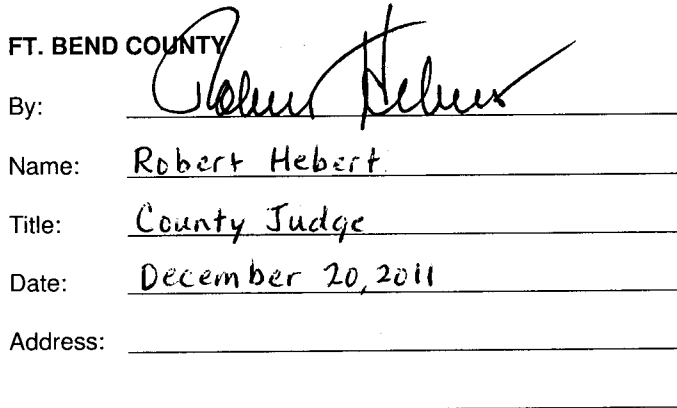 FT. BEND COUNTY
By: Robert Hebert
Name: Robert Hebert
Title: County Judge
Date: December 20, 2011
Address: